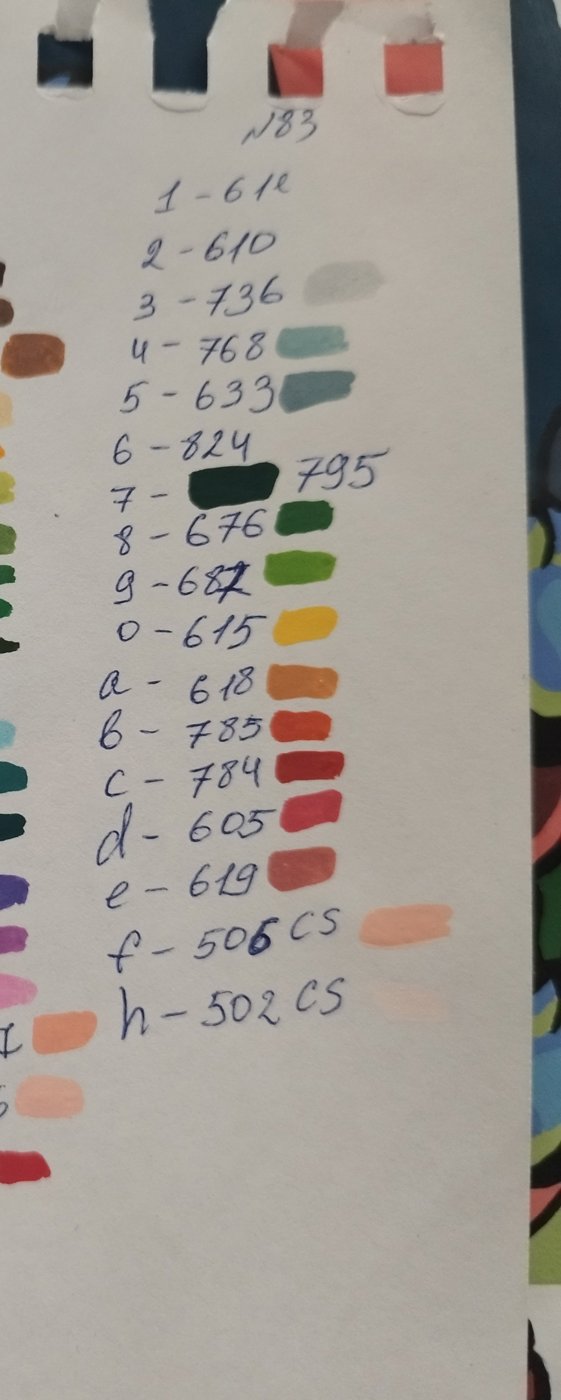 N83
1 - 61e
2 - 610
3 - 736
4 - 768
5 - 633
6 - 824
7 - 795
8 - 676
9 - 687
0 - 615
a - 618
b - 785
c - 784
d - 605
e - 619
f - 506 CS
h - 502 CS